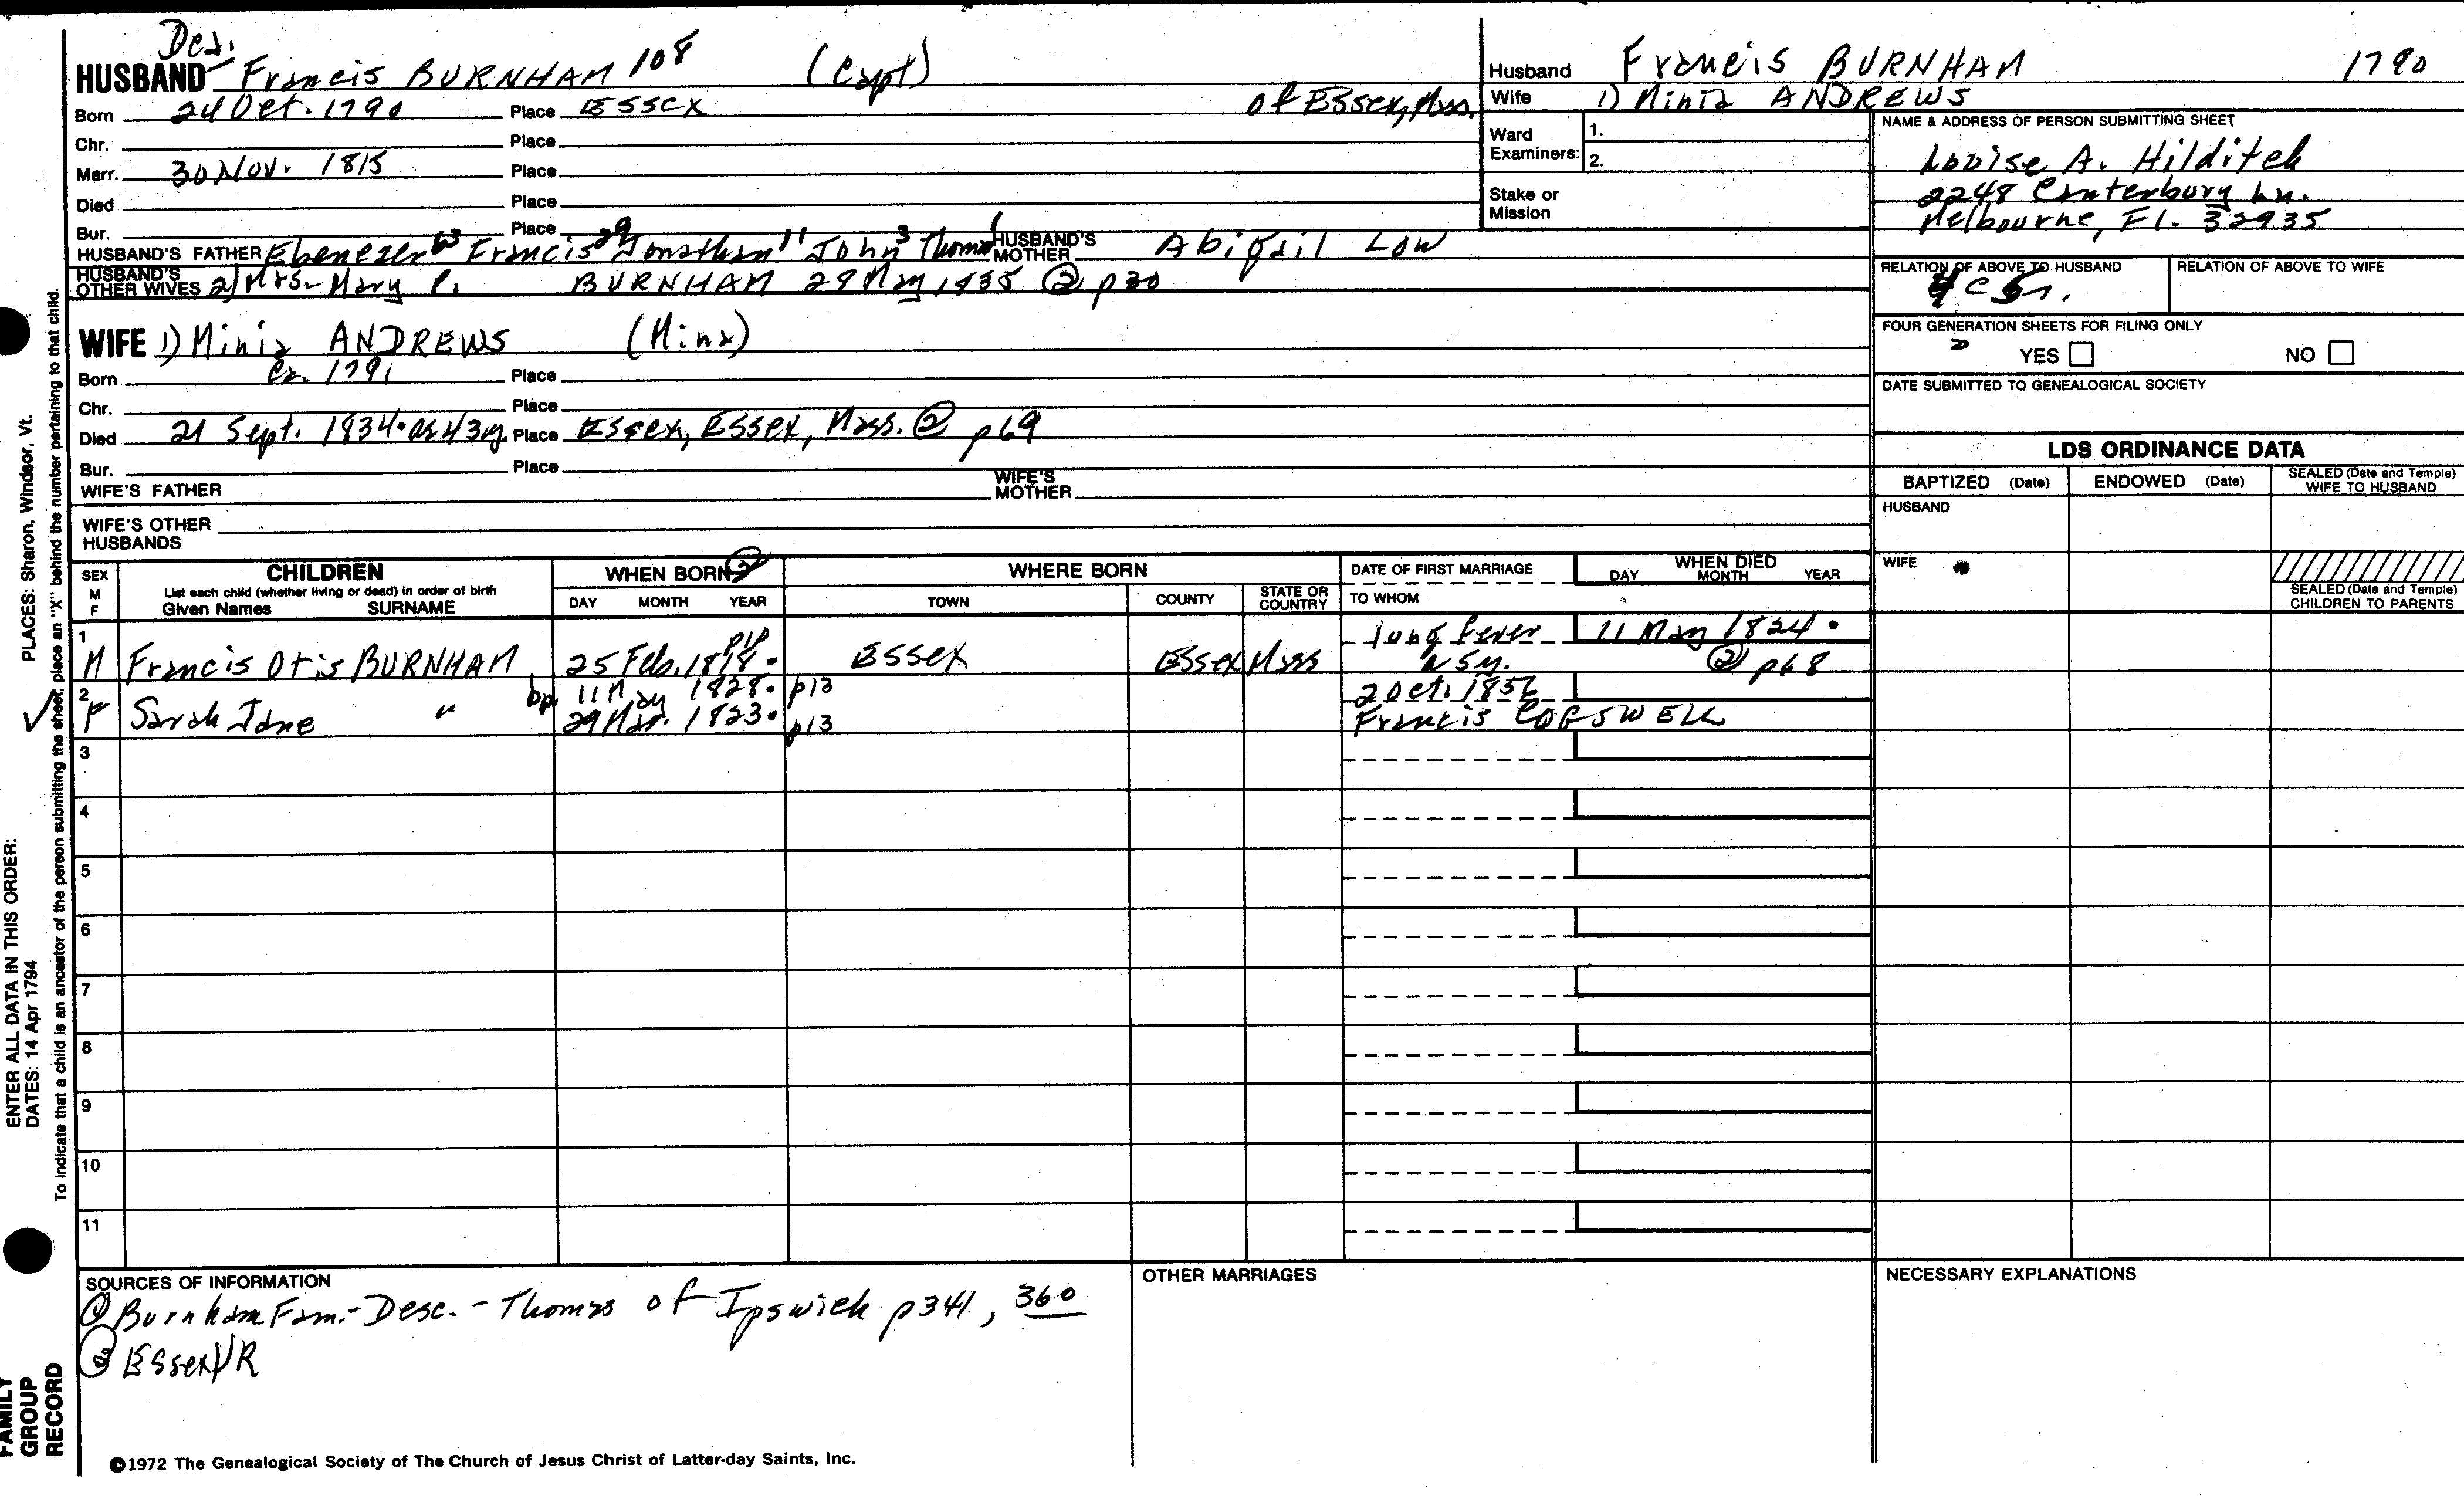 Des.
HUSBAND Francis BURNHAM 108 (Capt)
Born 24 Oct. 1790 Place Essex of Essex, Mass.
Chr. Place
Marr. 30 Nov. 1815 Place
Died Place
Bur. Place
HUSBAND'S FATHER Ebenezer 63 Francis 29 Jonathan 11 John 3 Thomas 1 HUSBAND'S MOTHER Abigail Low
HUSBAND'S OTHER WIVES 2) Mrs. Mary P. BURNHAM 28 May, 1835 ② p30
WIFE 1) Minia ANDREWS (Mina)
Born Ca 1791 Place
Chr. Place
Died 21 Sept. 1834. as 43y. Place Essex, Essex, Mass. ② p69
Bur. Place
WIFE'S FATHER WIFE'S MOTHER
WIFE'S OTHER HUSBANDS
Husband Francis BURNHAM 1790
Wife 1) Minia ANDREWS
Ward Examiners: 1.
2.
Stake or Mission
NAME & ADDRESS OF PERSON SUBMITTING SHEET
Louise A. Hilditch
2248 Canterbury Ln.
Melbourne, Fl. 32935
RELATION OF ABOVE TO HUSBAND RELATION OF ABOVE TO WIFE
FOUR GENERATION SHEETS FOR FILING ONLY
YES NO
DATE SUBMITTED TO GENEALOGICAL SOCIETY
LDS ORDINANCE DATA
BAPTIZED (Date) ENDOWED (Date) SEALED (Date and Temple) WIFE TO HUSBAND
HUSBAND
WIFE
SEALED (Date and Temple) CHILDREN TO PARENTS
SEX M F CHILDREN
List each child (whether living or dead) in order of birth
Given Names SURNAME
WHEN BORN ②
DAY MONTH YEAR
WHERE BORN
TOWN COUNTY STATE OR COUNTRY
DATE OF FIRST MARRIAGE
TO WHOM
WHEN DIED
DAY MONTH YEAR
1 lung fever 11 May 1824.
M Francis Otis BURNHAM 25 Feb. 1818. Essex Essex Mass 5y. ② p68
2 bp. 11 May 1828. p13 2 Oct. 1856
F Sarah Jane " 29 Mar. 1823. p13 Francis COGSWELL
3
4
5
6
7
8
9
10
11
SOURCES OF INFORMATION
① Burnham Fam.-Desc.-Thomas of Ipswich p341, 360
② Essex VR
OTHER MARRIAGES
NECESSARY EXPLANATIONS
©1972 The Genealogical Society of The Church of Jesus Christ of Latter-day Saints, Inc.
FAMILY GROUP RECORD
ENTER ALL DATA IN THIS ORDER:
DATES: 14 Apr 1794 PLACES: Sharon, Windsor, Vt.
To indicate that a child is an ancestor of the person submitting the sheet, place an "X" behind the number pertaining to that child.